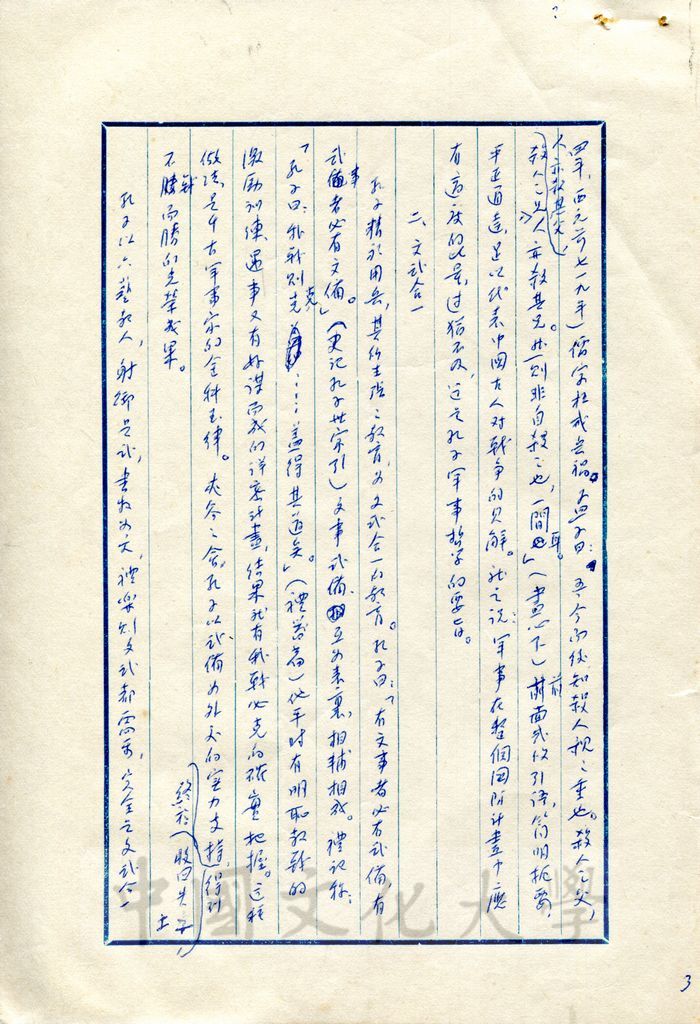 四年,西元前七一九年)儒家杜戒兵禍。孟子曰:吾今而後知殺人親之重也。殺人之父,
人亦殺其父,
殺人之兄,人亦殺其兄。然則非自殺之也,一間耳。」(盡心下)前面幾次引語,簡明扼要,
平正通達,足以代表中國古人對戰爭的見解。總之說:軍事在整個國防計畫中應
有適度的比量,過猶不及,這是孔子軍事哲學的要旨。
二、文武合一
孔子精於用兵,其所主張之教育,為文武合一的教育。孔子曰:「有文事者必有武備,有
武事者必有文備。」(史記孔子世家引)文事武備,相互為表裏,相輔相成。禮記稱:
「孔子曰:我戰則克……蓋得其道矣」。(禮器篇)他平時有明恥教戰的
激勵訓練,遇事又有好謀而成的詳密計畫,結果就有我戰必克的確實把握。這種
做法,是千古軍事家的金科玉律。夾谷之會,孔子以武備為外交的實力支撐,得到
終於收回失土
不戰而勝的光榮成果。
孔子以六藝教人,射御是武,書數為文,禮樂則文武都需要,完全是文武合一
中國文化大學
3